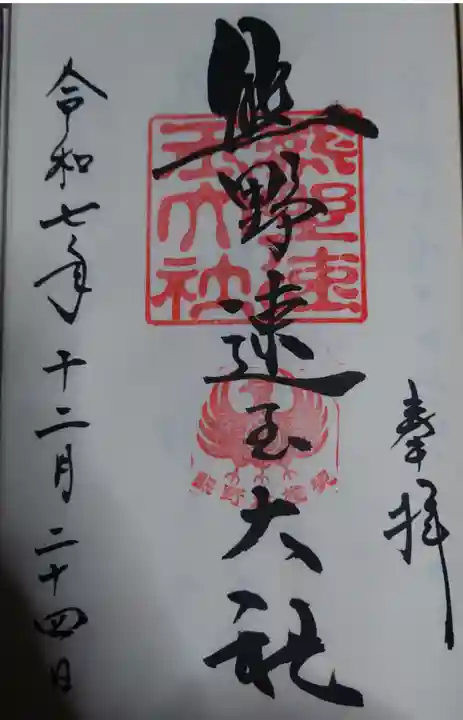 奉拝
熊野速玉大社
熊野速
玉大社
令和七年十二月二十四日